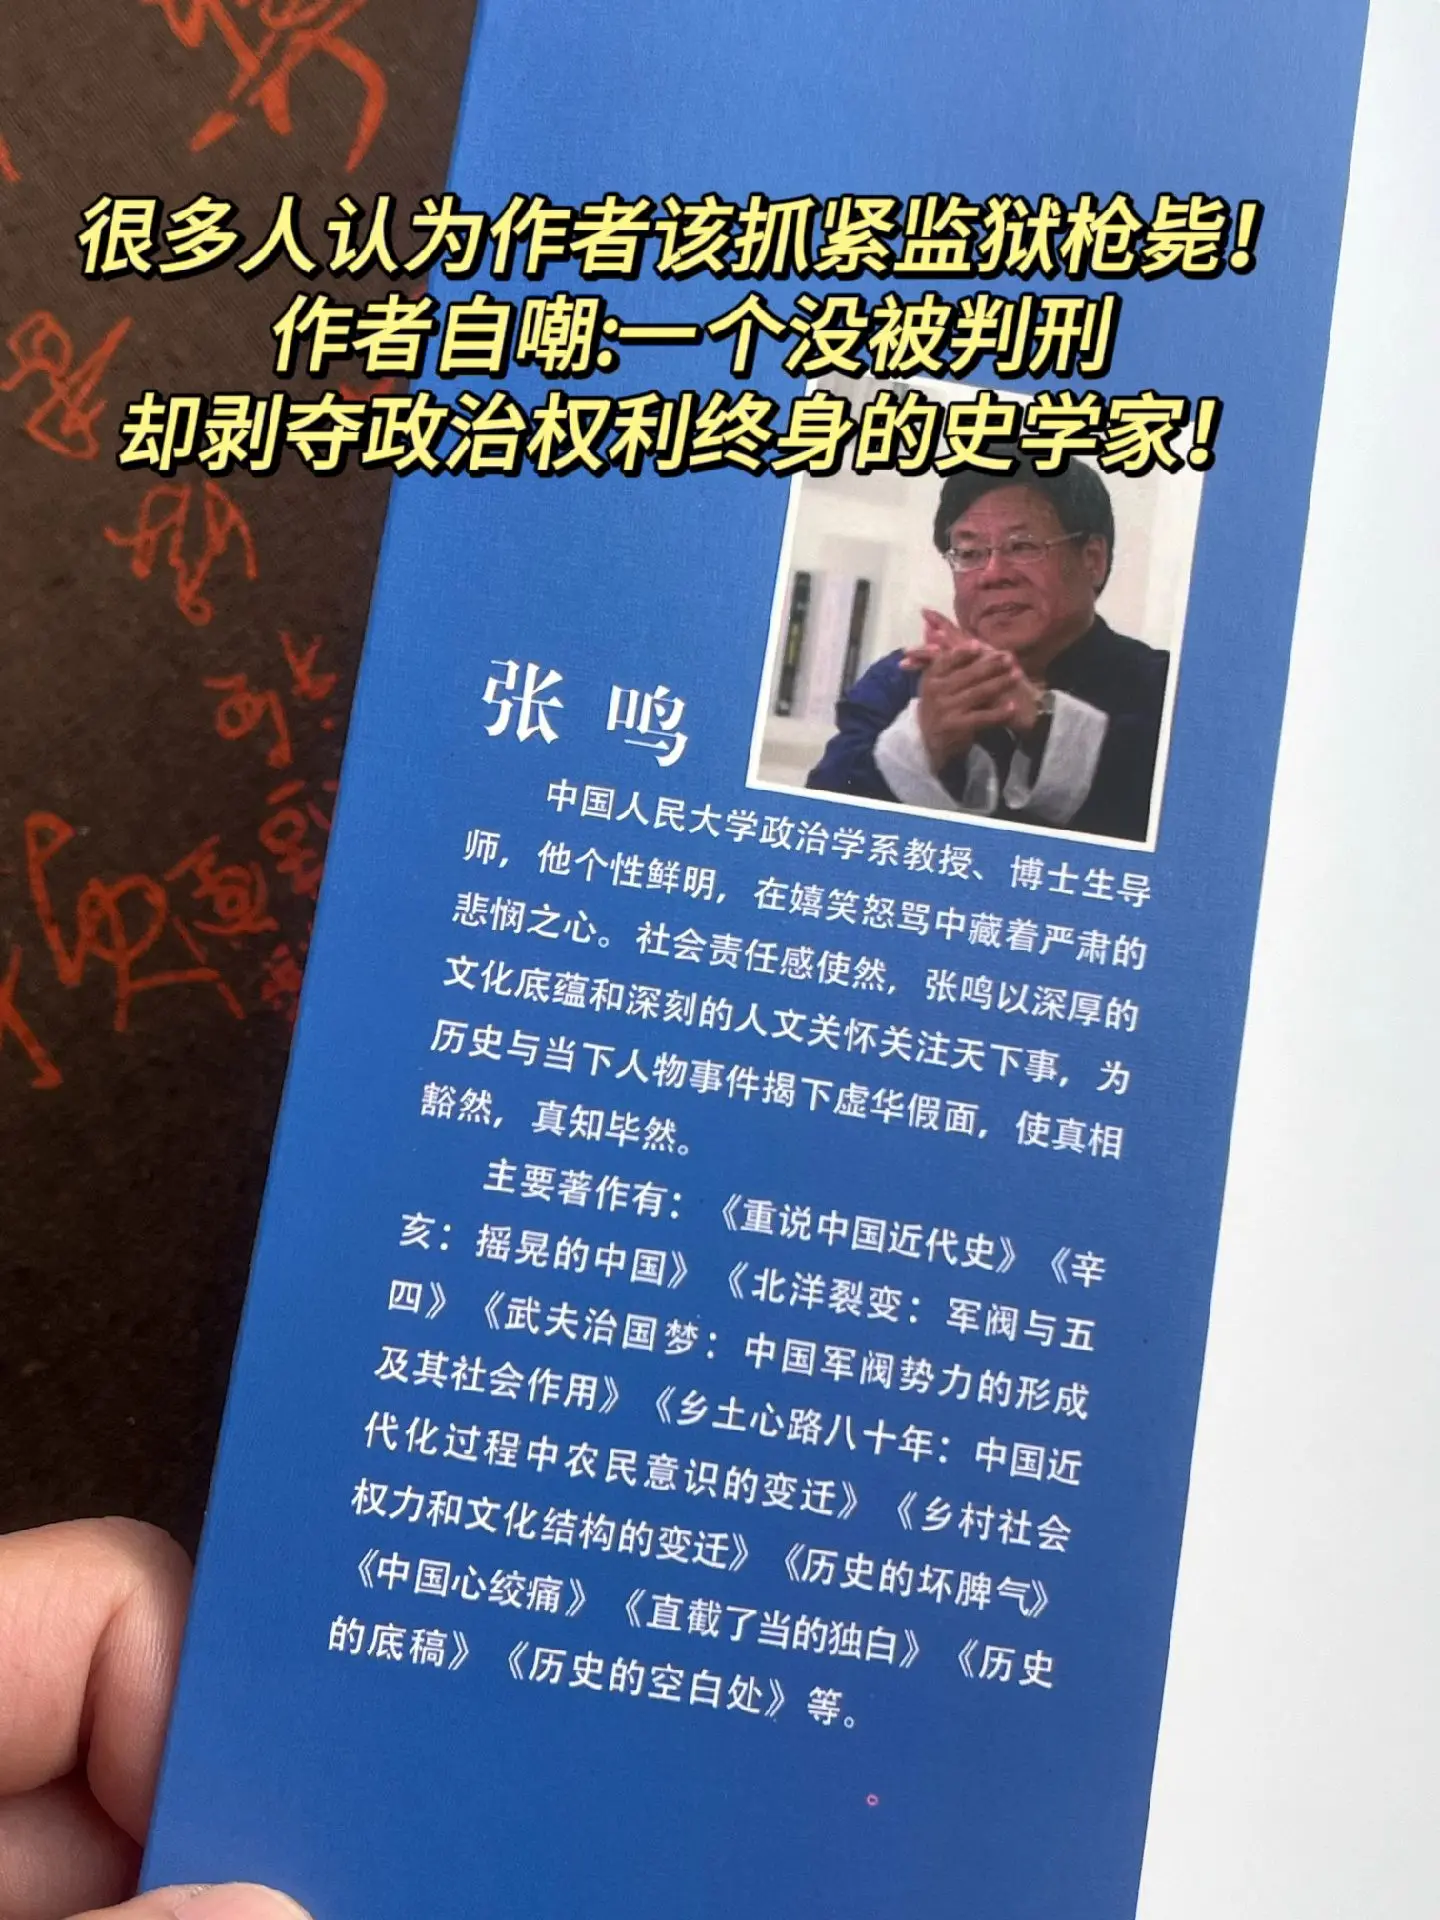 很多人认为作者该抓紧监狱枪毙！
作者自嘲:一个没被判刑
却剥夺政治权利终身的史学家！
张 鸣
中国人民大学政治学系教授、博士生导
师，他个性鲜明，在嬉笑怒骂中藏着严肃的
悲悯之心。社会责任感使然，张鸣以深厚的
文化底蕴和深刻的人文关怀关注天下事，为
历史与当下人物事件揭下虚华假面，使真相
豁然，真知毕然。
主要著作有：《重说中国近代史》《辛
亥：摇晃的中国》《北洋裂变：军阀与五
四》《武夫治国梦：中国军阀势力的形成
及其社会作用》《乡土心路八十年：中国近
代化过程中农民意识的变迁》《乡村社会
权力和文化结构的变迁》《历史的坏脾气》
《中国心绞痛》《直截了当的独白》《历史
的底稿》《历史的空白处》等。